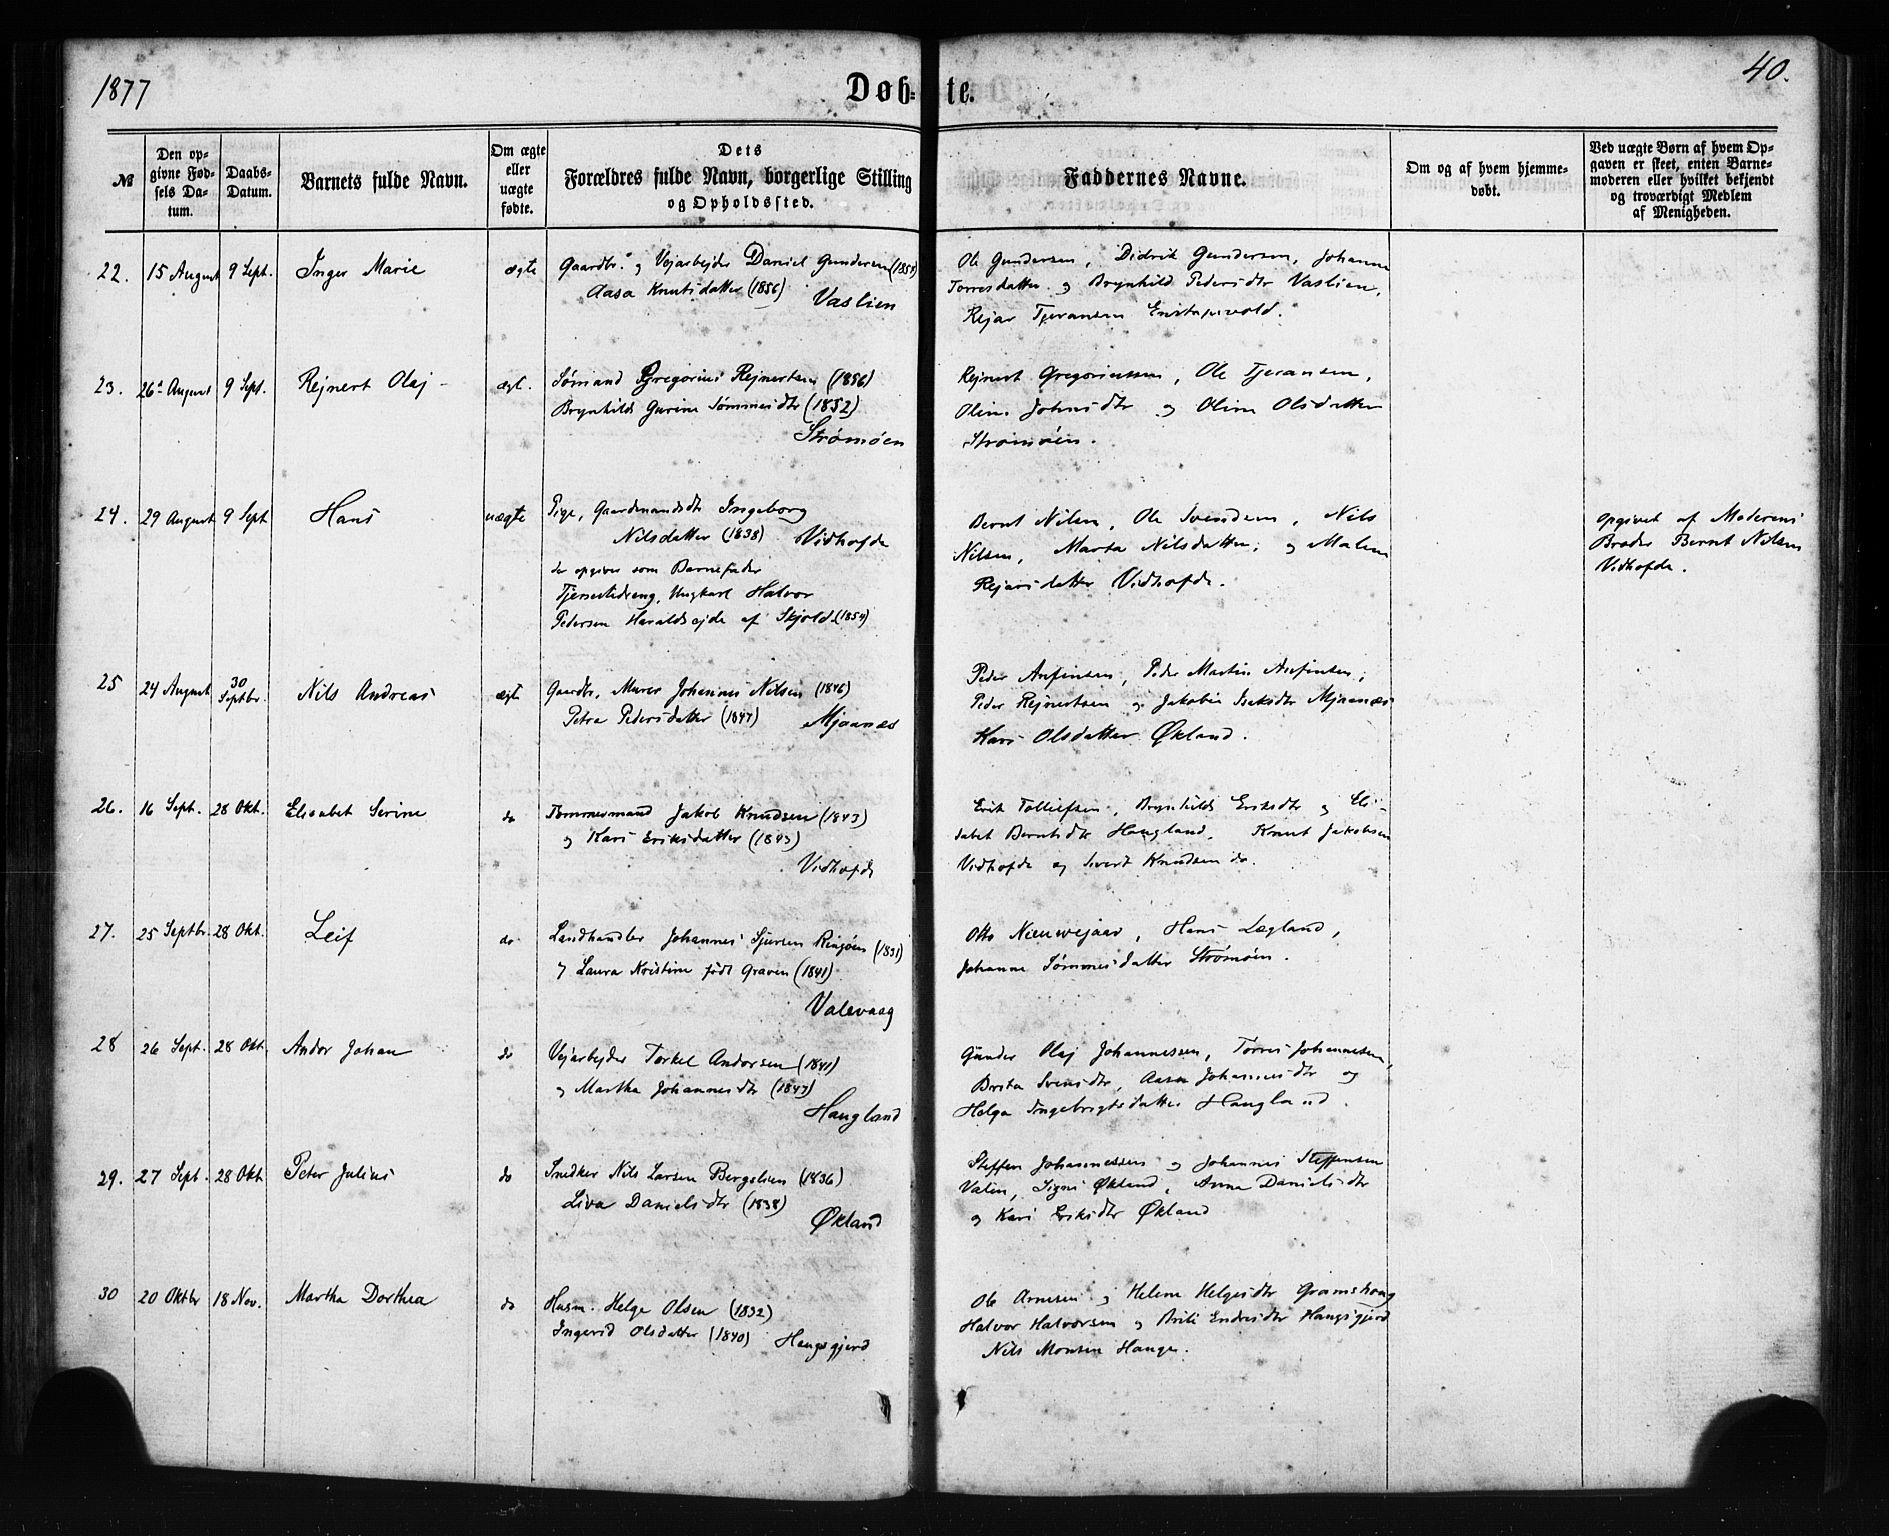 1877
Døbte.
40.
№
Den opgivne Fødsels Datum.
Daabs-Datum.
Barnets fulde Navn.
Om ægte eller uægte fødte.
Dets Forældres fulde Navn, borgerlige Stilling og Opholdssted.
Faddernes Navne.
Om og af hvem hjemmedøbt.
Ved uægte Børn af hvem Opgaven er skeet, enten Barnemoderen eller hvilket bekjendt og troværdigt Medlem af Menigheden.
22. 15 August 9 Sept. Inger Marie ægte
Gaardbr. og Vejarbejder Daniel Gundersen
Aasa Knutsdatter (1856) Vaslien
Ole Gundersen, Didrik Gundersen, Johanne
Torresdatter og Brynhild Pedersdtr Vaslien,
Rejar Tjeransen
23. 26 August 9 Sept. Rejnert Olaj ægt.
Sømand Gregorius Rejnertsen (1856)
Brynhild Gurine Sømmesdtr (1852)
Strømøen
Rejnert Gregoriussen, Ole Tjeransen,
Oline Johnsdtr og Oline Olsdatter
Strømøen.
24. 29 August 9 Sept Hans uægte
Pige, Gaardmandsdtr Ingeborg
Nilsdatter (1838) Vidhofde
der opgiver som Barnefader
Tjenestedreng, Ungkarl Halvor
Pedersen Haraldsejde af Skjold (1854)
Bernt Nilsen, Ole Svendsen, Nils
Nilsen, Marta Nilsdatter, og Malene
Rejarsdatter Vidhofde.
Opgivet af Moderens
Broder Bernt Nilsen
Vidhofde.
25 24 August 30 Septbr. Nils Andreas ægte
Gaardbr, Murer Johannes Nilsen (1846)
Petra Pedersdatter (1847) Mjaanes
Peder Arfinsen, Peder Martin Arfinsen,
Peder Rejnertsen og Jakobine Isaksdtr Mjaanæs
Kari Olsdatter Økland.
26. 16 Sept. 28 Okt. Elisabet Serine do
Tømmermand Jakob Knudsen (1843)
og Kari Eriksdatter (1843)
Vidhofde
Erik Tollefsen, Brynhild Eriksdtr og Eli-
sabet Berntsdtr Haugland, Knut Jakobsen
Vidhofde og Sivert Knudsen do.
27. 25 Septbr. 28 Okt. Leif do
Landhandler Johannes Sjursen Ringøen (1831)
og Laura Kristine født Graven (1841)
Valevaag
Otto Nieuwejaar, Hans Lægland,
Johanne Sømmesdatter Strømøen.
28 26 Sept. 28 Okt. Andor Johan do
Vejarbejder Torkel Andorsen (1841)
og Martha Johannesdtr (1847)
Haugland
Gunder Olaj Johannessen, Torres Johannesen,
Brita Svensdtr, Aasa Johannesdtr og
Helga Ingebrigtsdatter Haugland.
29. 27 Sept. 28 Okt Peter Julius do
Snedker Nils Larsen Bergslien (1836)
Liva Danielsdtr (1838)
Økland
Steffen Johannessen og Johannes Steffensen
Valen, Signi Økland, Anna Danielsdtr
og Kari Eriksdtr Økland
30 20 Oktbr 18 Nov. Martha Dorthea do
Husm. Helge Olsen (1832)
Ingerid Olsdatter (1840) Haugsgjerd
Ole Arnesen og Helene Helgesdtr Gramshaug
Halvor Halvorsen og Brite Endresdtr Haugsgjerd
Nils Monsen Hauge.